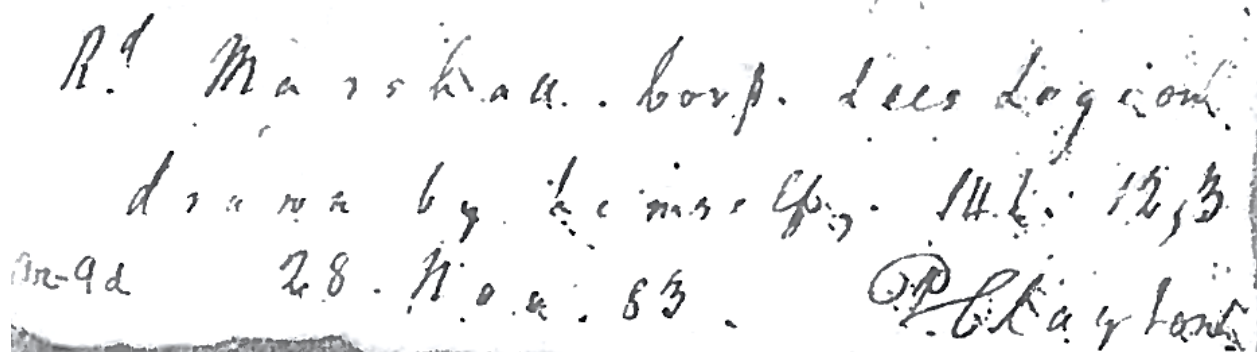 Rd. Marshall. Corp. Lees Legion
drawn by himself, 14£. 12,3
28. Nov. 83. P Clayton